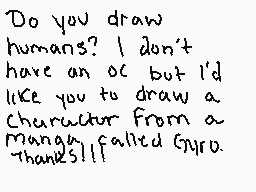 Do you draw
humans? I don't
have an oc but I'd
like you to draw a
charactur from a
manga called Gyro.
Thanks!!!